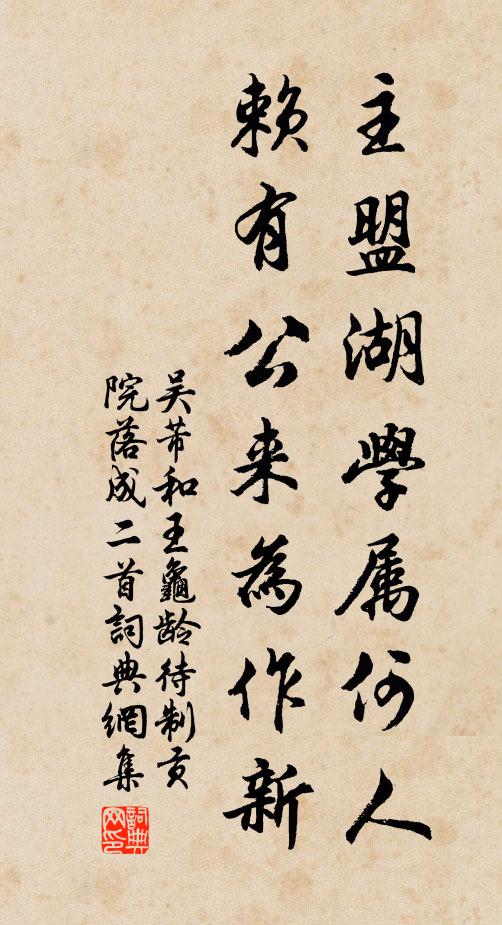 主盟湖學属何人
賴有公来為作新
吴芾和王龜龄待制贡
院落成二首詞典網集
詞典网印